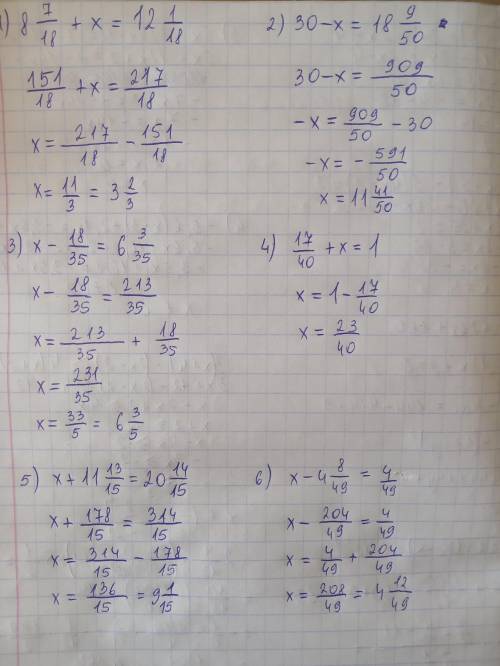 1) 8 7/18 + x = 12 1/18
151/18 + x = 217/18
x = 217/18 - 151/18
x = 11/3 = 3 2/3
2) 30 - x = 18 9/50
30 - x = 909/50
-x = 909/50 - 30
-x = - 591/50
x = 11 41/50
3) x - 18/35 = 6 3/35
x - 18/35 = 213/35
x = 213/35 + 18/35
x = 231/35
x = 33/5 = 6 3/5
4) 17/40 + x = 1
x = 1 - 17/40
x = 23/40
5) x + 11 13/15 = 20 14/15
x + 178/15 = 314/15
x = 314/15 - 178/15
x = 136/15 = 9 1/15
6) x - 4 8/49 = 4/49
x - 204/49 = 4/49
x = 4/49 + 204/49
x = 208/49 = 4 12/49